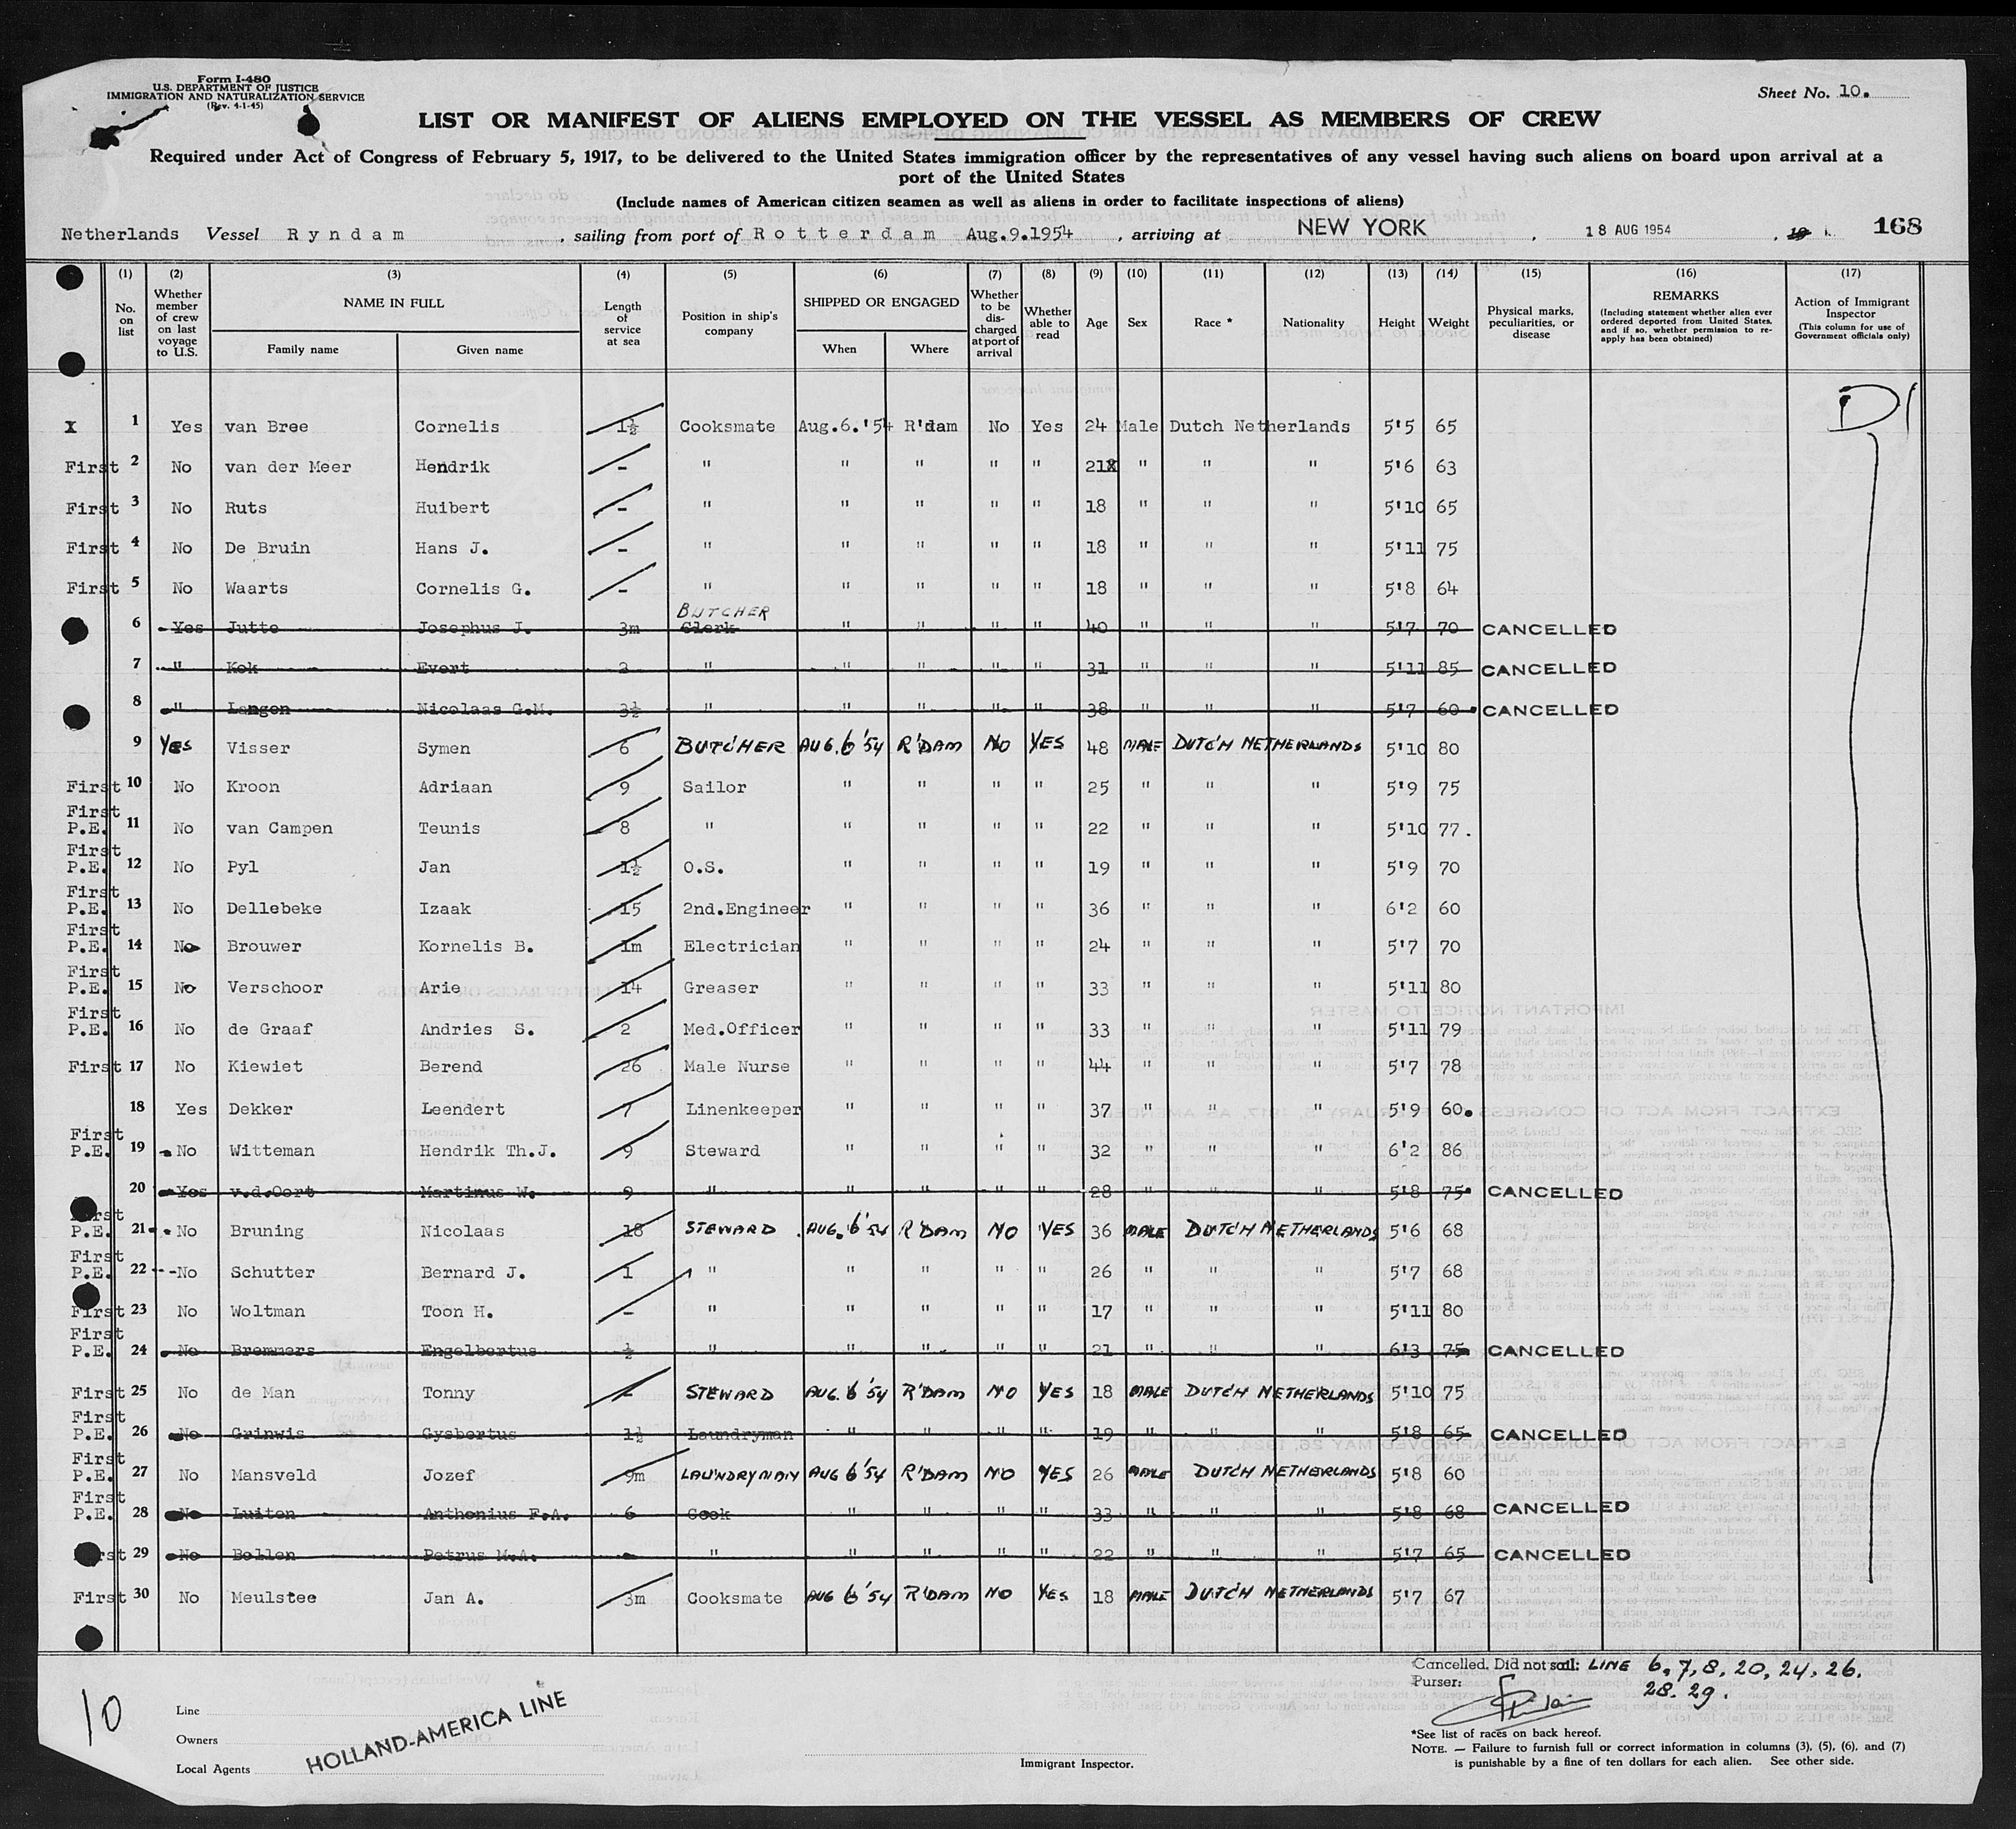 Form I-480
U.S. DEPARTMENT OF JUSTICE
IMMIGRATION AND NATURALIZATION SERVICE
(Rev. 4-1-45)
Sheet No. 10.
LIST OR MANIFEST OF ALIENS EMPLOYED ON THE VESSEL AS MEMBERS OF CREW
Required under Act of Congress of February 5, 1917, to be delivered to the United States immigration officer by the representatives of any vessel having such aliens on board upon arrival at a
port of the United States
(Include names of American citizen seamen as well as aliens in order to facilitate inspections of aliens)
Netherlands Vessel Ryndam, sailing from port of Rotterdam Aug.9.1954, arriving at NEW YORK, 18 AUG 1954, 19 168
(1) (2) (3) (4) (5) (6) (7) (8) (9) (10) (11) (12) (13) (14) (15) (16) (17)
No. on list
Whether member of crew on last voyage to U.S.
NAME IN FULL
Family name Given name
Length of service at sea
Position in ship's company
SHIPPED OR ENGAGED
When Where
Whether to be discharged at port of arrival
Whether able to read
Age Sex Race * Nationality Height Weight
Physical marks, peculiarities, or disease
REMARKS
(Including statement whether alien ever ordered deported from United States, and if so, whether permission to reapply has been obtained)
Action of Immigrant Inspector
(This column for use of Government officials only)
X 1 Yes van Bree Cornelis 1½ Cooksmate Aug.6.'54 R'dam No Yes 24 Male Dutch Netherlands 5'5 65
First 2 No van der Meer Hendrik - " " " " " 21 " " " 5'6 63
First 3 No Ruts Huibert - " " " " " 18 " " " 5'10 65
First 4 No De Bruin Hans J. - " " " " " 18 " " " 5'11 75
First 5 No Waarts Cornelis G. - " " " " " 18 " " " 5'8 64
BUTCHER
6 Yes Jutte Josephus J. 3m Clerk " " " " 40 " " " 5'7 70 CANCELLED
7 " Kok Evert 2 " " " " " 31 " " " 5'11 85 CANCELLED
8 " Langen Nicolaas G.M. 3½ " " " " " 38 " " " 5'7 60 CANCELLED
9 YES Visser Symen 6 BUTCHER AUG. 6 '54 R'DAM NO YES 48 MALE DUTCH NETHERLANDS 5'10 80
First 10 No Kroon Adriaan 9 Sailor " " " " 25 " " " 5'9 75
First P.E. 11 No van Campen Teunis 8 " " " " " 22 " " " 5'10 77.
First P.E. 12 No Pyl Jan 1½ O.S. " " " " 19 " " " 5'9 70
First P.E. 13 No Dellebeke Izaak 15 2nd.Engineer " " " " 36 " " " 6'2 60
First P.E. 14 No Brouwer Kornelis B. 1m Electrician " " " " 24 " " " 5'7 70
First P.E. 15 No Verschoor Arie 14 Greaser " " " " 33 " " " 5'11 80
First P.E. 16 No de Graaf Andries S. 2 Med.Officer " " " " 33 " " " 5'11 79
First 17 No Kiewiet Berend 26 Male Nurse " " " " 44 " " " 5'7 78
18 Yes Dekker Leendert 7 Linenkeeper " " " " 37 " " " 5'9 60.
First P.E. 19 No Witteman Hendrik Th.J. 9 Steward " " " " 32 " " " 6'2 86
20 Yes v.d.Oort Martinus W. 9 " " " " " 28 " " " 5'8 75 CANCELLED
First P.E. 21 No Bruning Nicolaas 18 STEWARD AUG. 6 '54 R'DAM NO YES 36 MALE DUTCH NETHERLANDS 5'6 68
First P.E. 22 No Schutter Bernard J. 1 " " " " " 26 " " " 5'7 68
First 23 No Woltman Toon H. - " " " " " 17 " " " 5'11 80
First P.E. 24 No Bremmers Engelbertus ½ " " " " " 21 " " " 6'3 75 CANCELLED
First 25 No de Man Tonny - STEWARD AUG. 6 '54 R'DAM NO YES 18 MALE DUTCH NETHERLANDS 5'10 75
First P.E. 26 No Grinwis Gysbertus 1½ Laundryman " " " " 19 " " " 5'8 65 CANCELLED
First P.E. 27 No Mansveld Jozef 9m LAUNDRYMAN AUG 6 '54 R'DAM NO YES 26 MALE DUTCH NETHERLANDS 5'8 60
First P.E. 28 No Luiten Anthonius F.A. 6 Cook " " " " 33 " " " 5'8 68 CANCELLED
First 29 No Bollen Petrus M.A. - " " " " " 22 " " " 5'7 65 CANCELLED
First 30 No Meulstee Jan A. 3m Cooksmate AUG 6 '54 R'DAM NO YES 18 MALE DUTCH NETHERLANDS 5'7 67
Cancelled. Did not sail: LINE 6, 7, 8, 20, 24, 26.
Purser: 28. 29.
10
Line
Owners
Local Agents
HOLLAND-AMERICA LINE
Immigrant Inspector.
*See list of races on back hereof.
NOTE. — Failure to furnish full or correct information in columns (3), (5), (6), and (7)
is punishable by a fine of ten dollars for each alien. See other side.